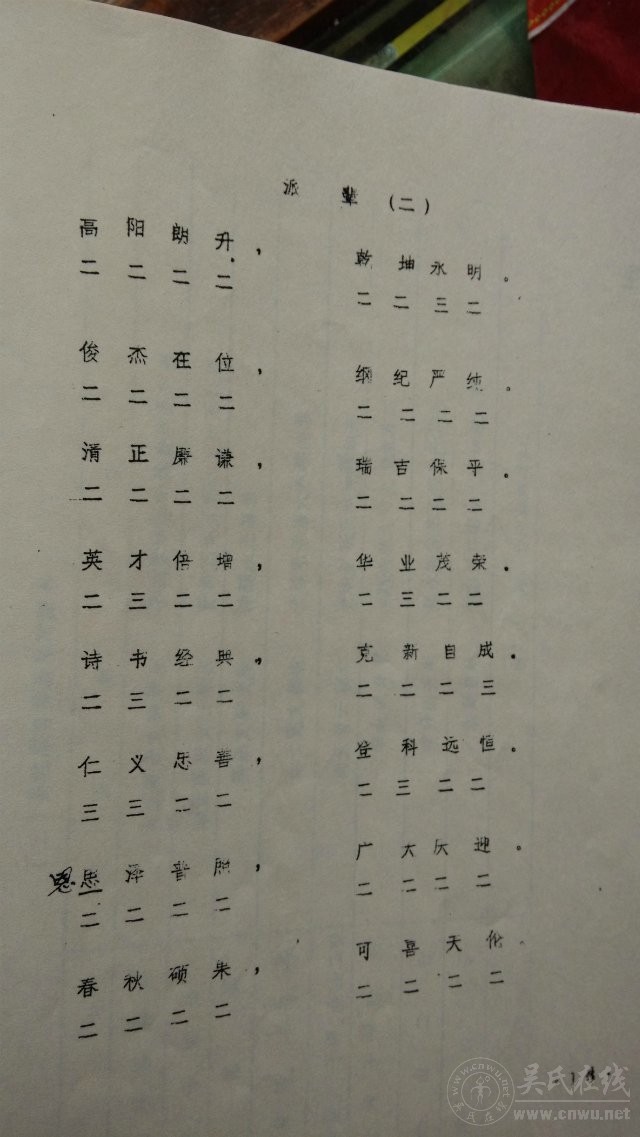 派 辈 (二)
高 阳 朗 升， 乾 坤 永 明。
二 二 二 二 二 二 三 二
俊 杰 在 位， 纲 纪 严 纯。
二 二 二 二 二 二 二 二
清 正 廉 谦， 瑞 吉 保 平。
二 二 二 二 二 二 二 二
英 才 倍 增， 华 业 茂 荣。
二 三 二 二 二 三 二 二
诗 书 经 典， 克 新 自 成。
二 三 二 二 二 二 二 三
仁 义 忠 善， 登 科 远 恒。
三 三 二 二 二 三 二 二
恩 思 泽 普 照， 广 大 庆 迎。
二 二 二 二 二 二 二 二
春 秋 硕 果， 可 喜 天 伦。
二 二 二 二 二 二 二 二
吴氏在线
www.cnwu.net